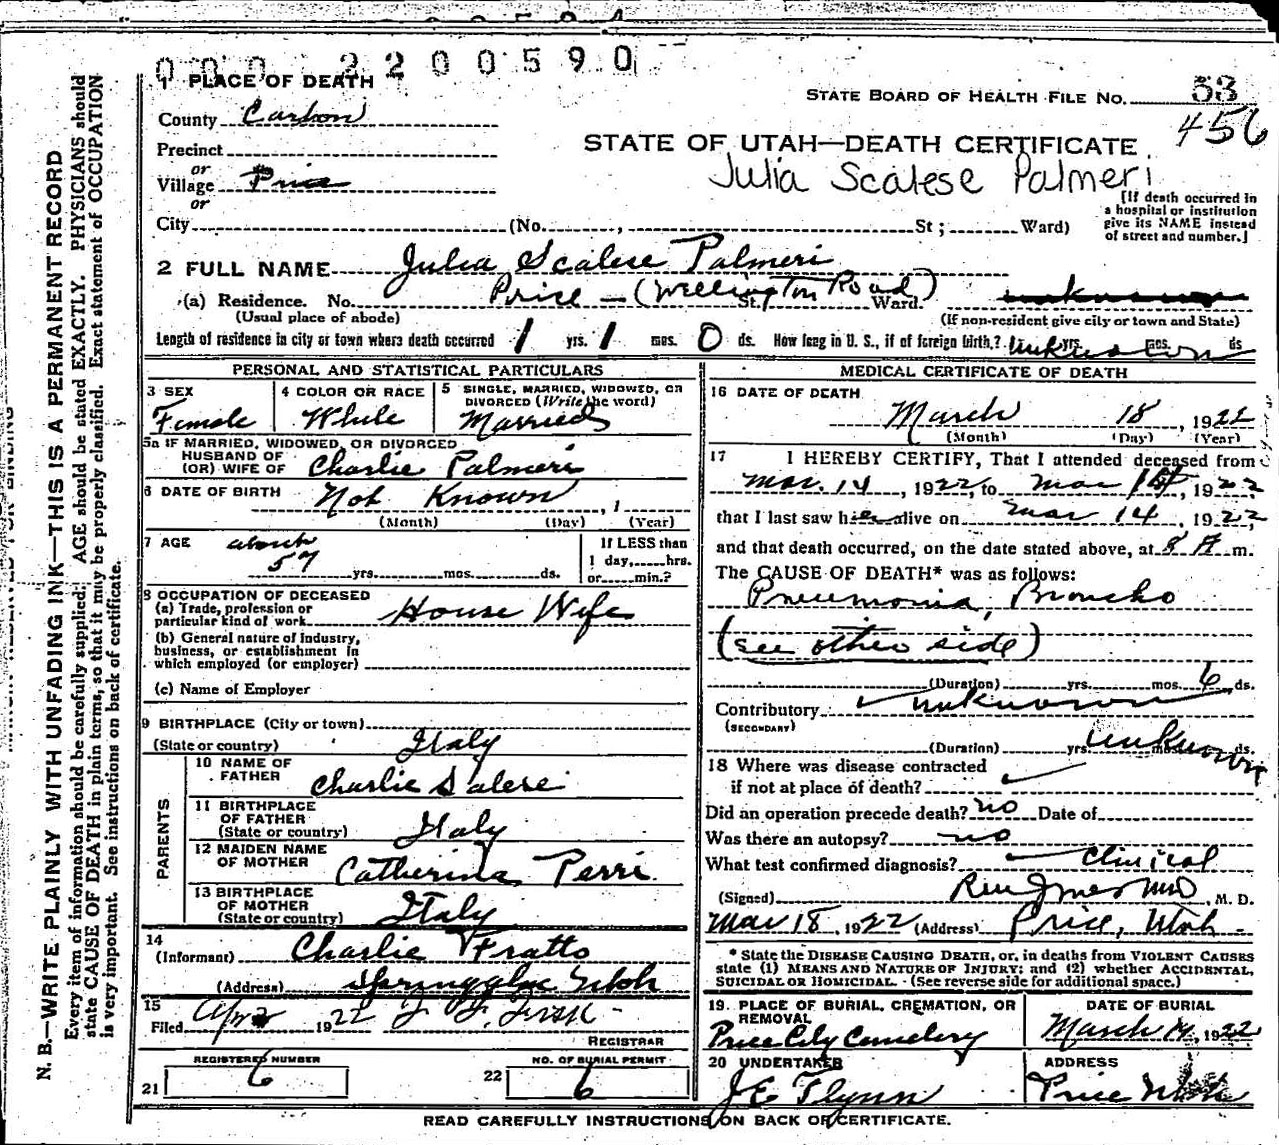 000 2200590
1 PLACE OF DEATH
STATE BOARD OF HEALTH FILE NO. 53
456
County Carbon
STATE OF UTAH—DEATH CERTIFICATE
Julia Scalese Palmeri
Precinct
or
Village Price
or
City (No. , St; Ward)
[If death occurred in
a hospital or institution
give its NAME instead
of street and number.]
2 FULL NAME Julia Scalese Palmeri
(a) Residence. No. Price — (Wellington Road) St. Ward. unknown
(Usual place of abode)
(If non-resident give city or town and State)
Length of residence in city or town where death occurred 1 yrs. 1 mos. 0 ds. How long in U. S., if of foreign birth? unknown yrs. mos. ds
PERSONAL AND STATISTICAL PARTICULARS
3 SEX
Female
4 COLOR OR RACE
White
5 SINGLE, MARRIED, WIDOWED, OR
DIVORCED (Write the word)
Married
5a IF MARRIED, WIDOWED, OR DIVORCED
HUSBAND OF
(OR) WIFE OF Charlie Palmeri
6 DATE OF BIRTH Not Known , 1
(Month) (Day) (Year)
7 AGE about
57 yrs. mos. ds.
If LESS than
1 day, hrs.
or min.?
8 OCCUPATION OF DECEASED
(a) Trade, profession or
particular kind of work House Wife
(b) General nature of industry,
business, or establishment in
which employed (or employer)
(c) Name of Employer
9 BIRTHPLACE (City or town)
(State or country) Italy
PARENTS
10 NAME OF
FATHER Charlie Salese
11 BIRTHPLACE
OF FATHER
(State or country) Italy
12 MAIDEN NAME
OF MOTHER Catherina Perri.
13 BIRTHPLACE
OF MOTHER
(State or country) Italy
14
(Informant) Charlie Fratto
(Address) Utah
15
Filed Apr 1922
REGISTRAR
REGISTERED NUMBER
21 6
NO. OF BURIAL PERMIT
22 6
MEDICAL CERTIFICATE OF DEATH
16 DATE OF DEATH
March 18, 1922
(Month) (Day) (Year)
17 I HEREBY CERTIFY, That I attended deceased from
Mar. 14, 1922, to Mar , 1922,
that I last saw her alive on Mar 14, 1922,
and that death occurred, on the date stated above, at 8 A m.
The CAUSE OF DEATH* was as follows:
Pneumonia, Broncho
(see other side)
(Duration) yrs. mos. 6 ds.
Contributory unknown
(SECONDARY)
(Duration) yrs. unknown ds.
18 Where was disease contracted
if not at place of death?
Did an operation precede death? no Date of
Was there an autopsy? no
What test confirmed diagnosis? Clinical
(Signed) , M. D.
Mar 18, 1922 (Address) Price, Utah
* State the DISEASE CAUSING DEATH, or, in deaths from VIOLENT CAUSES
state (1) MEANS AND NATURE OF INJURY; and (2) whether ACCIDENTAL,
SUICIDAL OR HOMICIDAL. (See reverse side for additional space.)
19. PLACE OF BURIAL, CREMATION, OR
REMOVAL
Price City Cemetery
DATE OF BURIAL
March 19, 1922
20 UNDERTAKER
J E Flynn
ADDRESS
Price Utah
READ CAREFULLY INSTRUCTIONS ON BACK OF CERTIFICATE.
N. B.—WRITE PLAINLY WITH UNFADING INK—THIS IS A PERMANENT RECORD
Every item of information should be carefully supplied; AGE should be stated EXACTLY. PHYSICIANS should
state CAUSE OF DEATH in plain terms, so that it may be properly classified. Exact statement of OCCUPATION
is very important. See instructions on back of certificate.